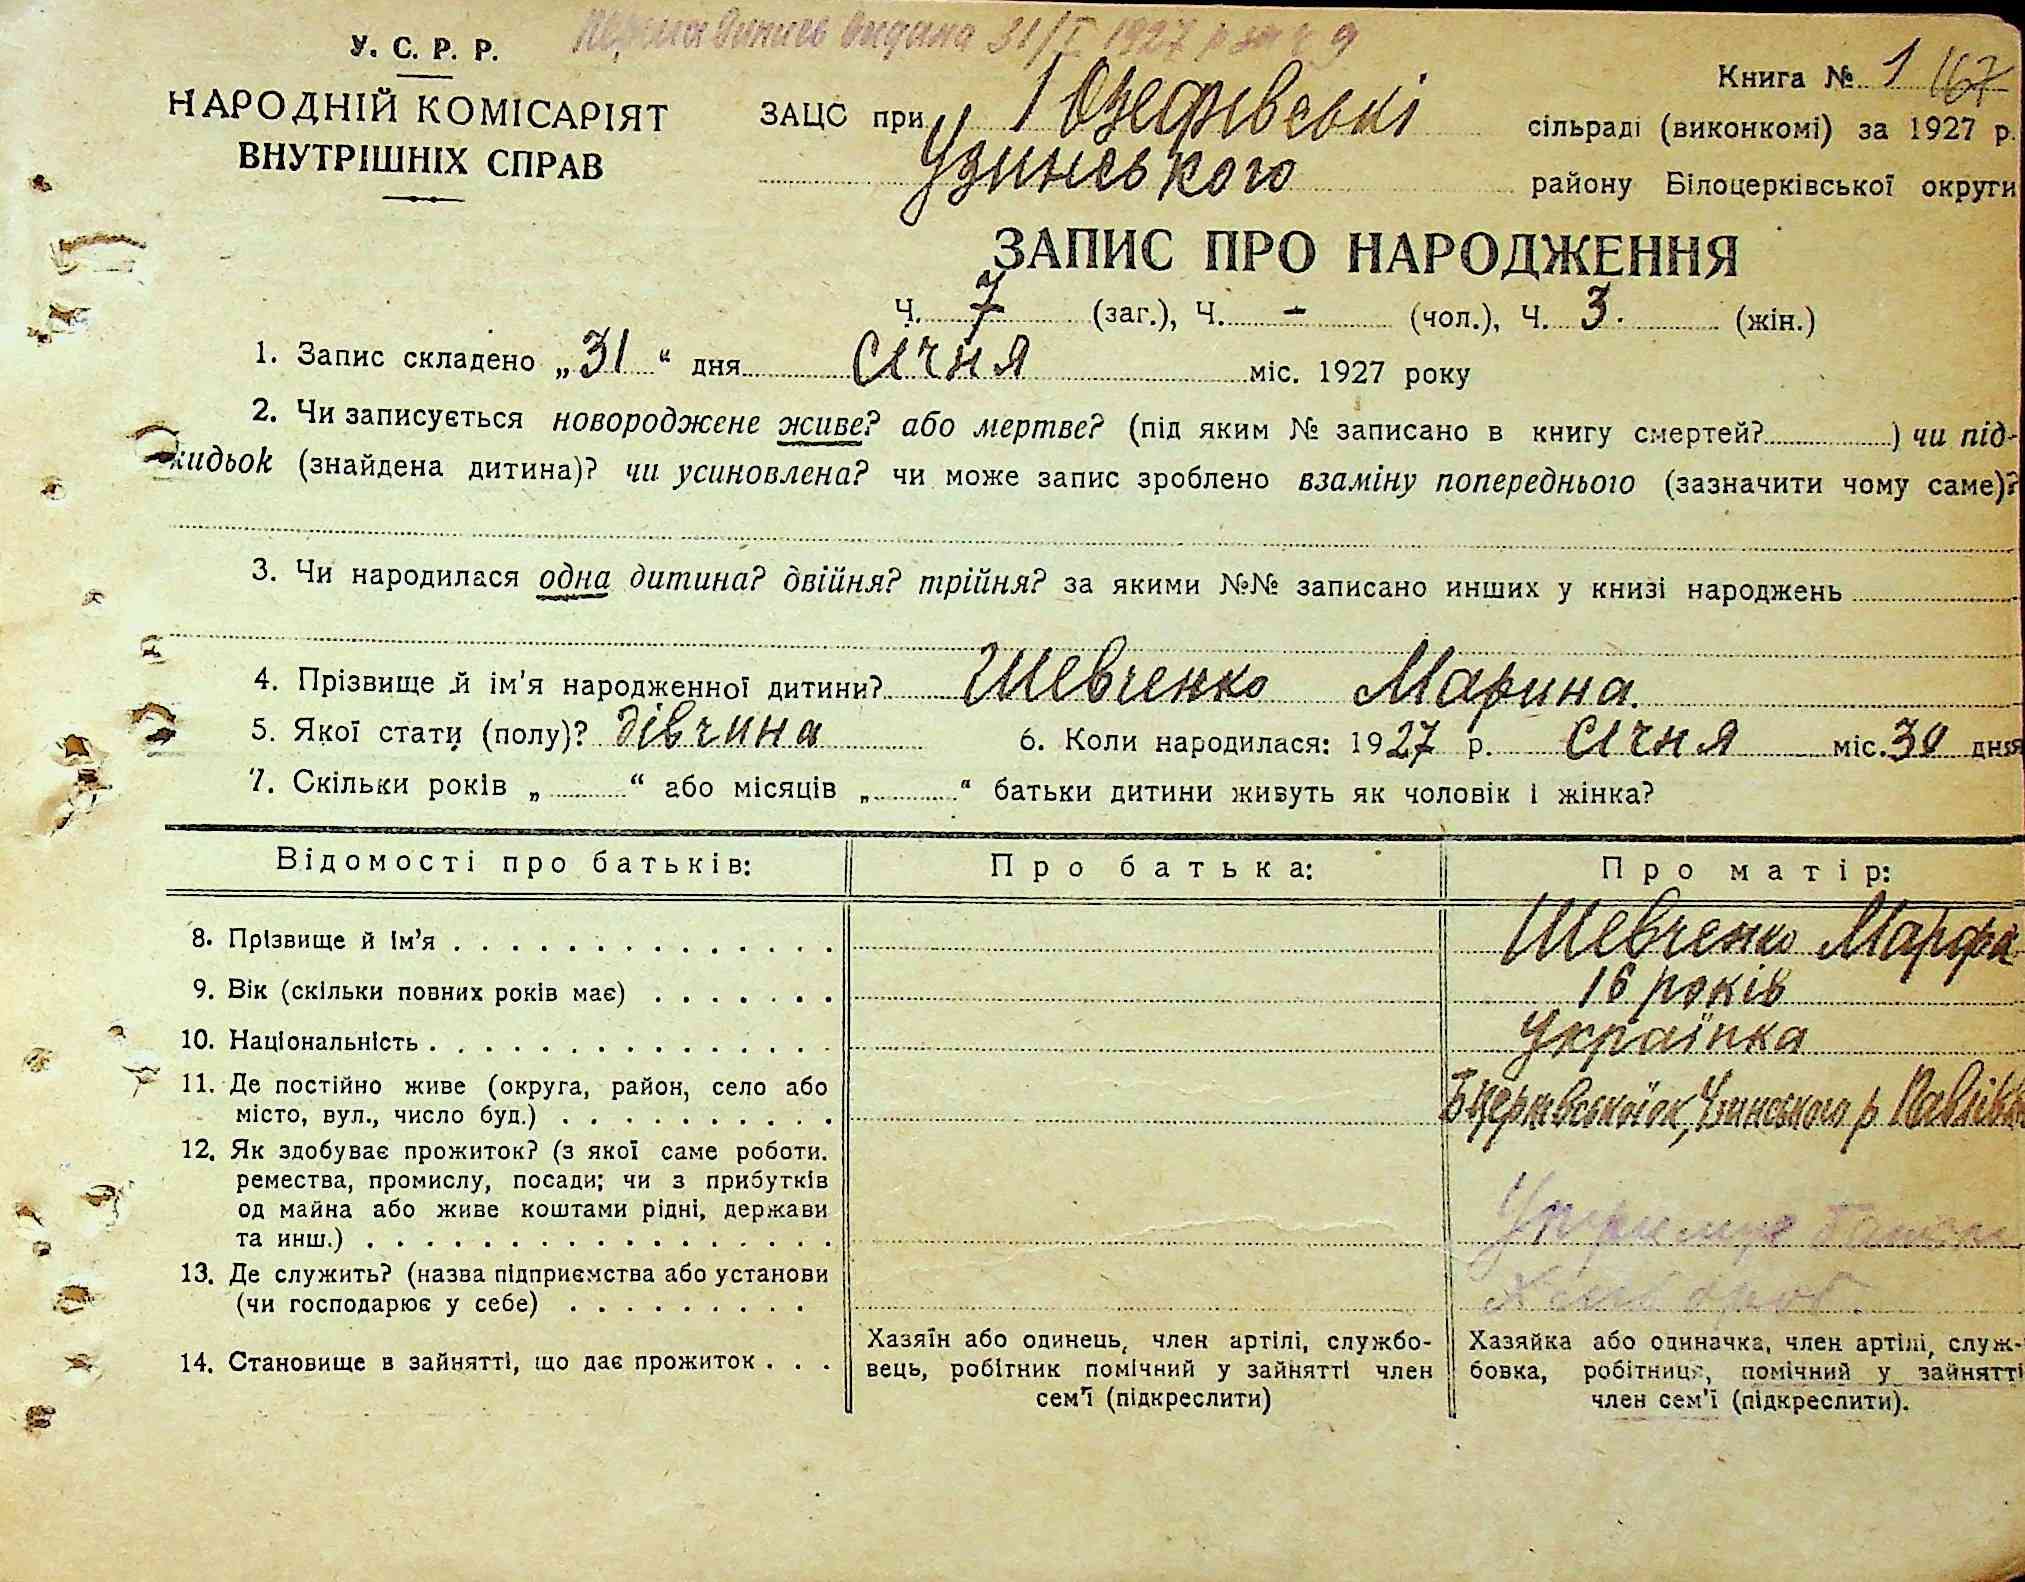 випись видана 31/I 1927 р за ч 9
У. С. Р. Р.
НАРОДНІЙ КОМІСАРІЯТ
ВНУТРІШНІХ СПРАВ
Книга № 1 167
ЗАЦС при Іозефівські сільраді (виконкомі) за 1927 р.
Узинського району Білоцерківської округи
ЗАПИС ПРО НАРОДЖЕННЯ
Ч. 7 (заг.), Ч. - (чол.), Ч. 3. (жін.)
1. Запис складено „31“ дня січня міс. 1927 року
2. Чи записується новороджене живе? або мертве? (під яким № записано в книгу смертей? ) чи під-
кидьок (знайдена дитина)? чи усиновлена? чи може запис зроблено взаміну попереднього (зазначити чому саме)?
3. Чи народилася одна дитина? двійня? трійня? за якими №№ записано инших у книзі народжень
4. Прізвище й ім'я народженної дитини? Шевченко Марина.
5. Якої стати (полу)? дівчина 6. Коли народилася: 1927 р. січня міс. 30 дня
7. Скільки років „ “ або місяців „ “ батьки дитини живуть як чоловік і жінка?
Відомості про батьків: Про батька: Про матір:
8. Прізвище й ім'я Шевченко Марфа
9. Вік (скільки повних років має) 16 років
10. Національність Українка
11. Де постійно живе (округа, район, село або
місто, вул., число буд.) Бцерківської ок, Узинського р Павлівка
12. Як здобуває прожиток? (з якої саме роботи.
ремества, промислу, посади; чи з прибутків
од майна або живе коштами рідні, держави
та инш.)
13. Де служить? (назва підприємства або установи
(чи господарює у себе)
14. Становище в зайнятті, що дає прожиток
Хазяїн або одинець, член артілі, службо-
вець, робітник помічний у зайнятті член
сем'ї (підкреслити)
Хазяйка або одиначка, член артілі, служ-
бовка, робітниця, помічний у зайнятті
член сем'ї (підкреслити).